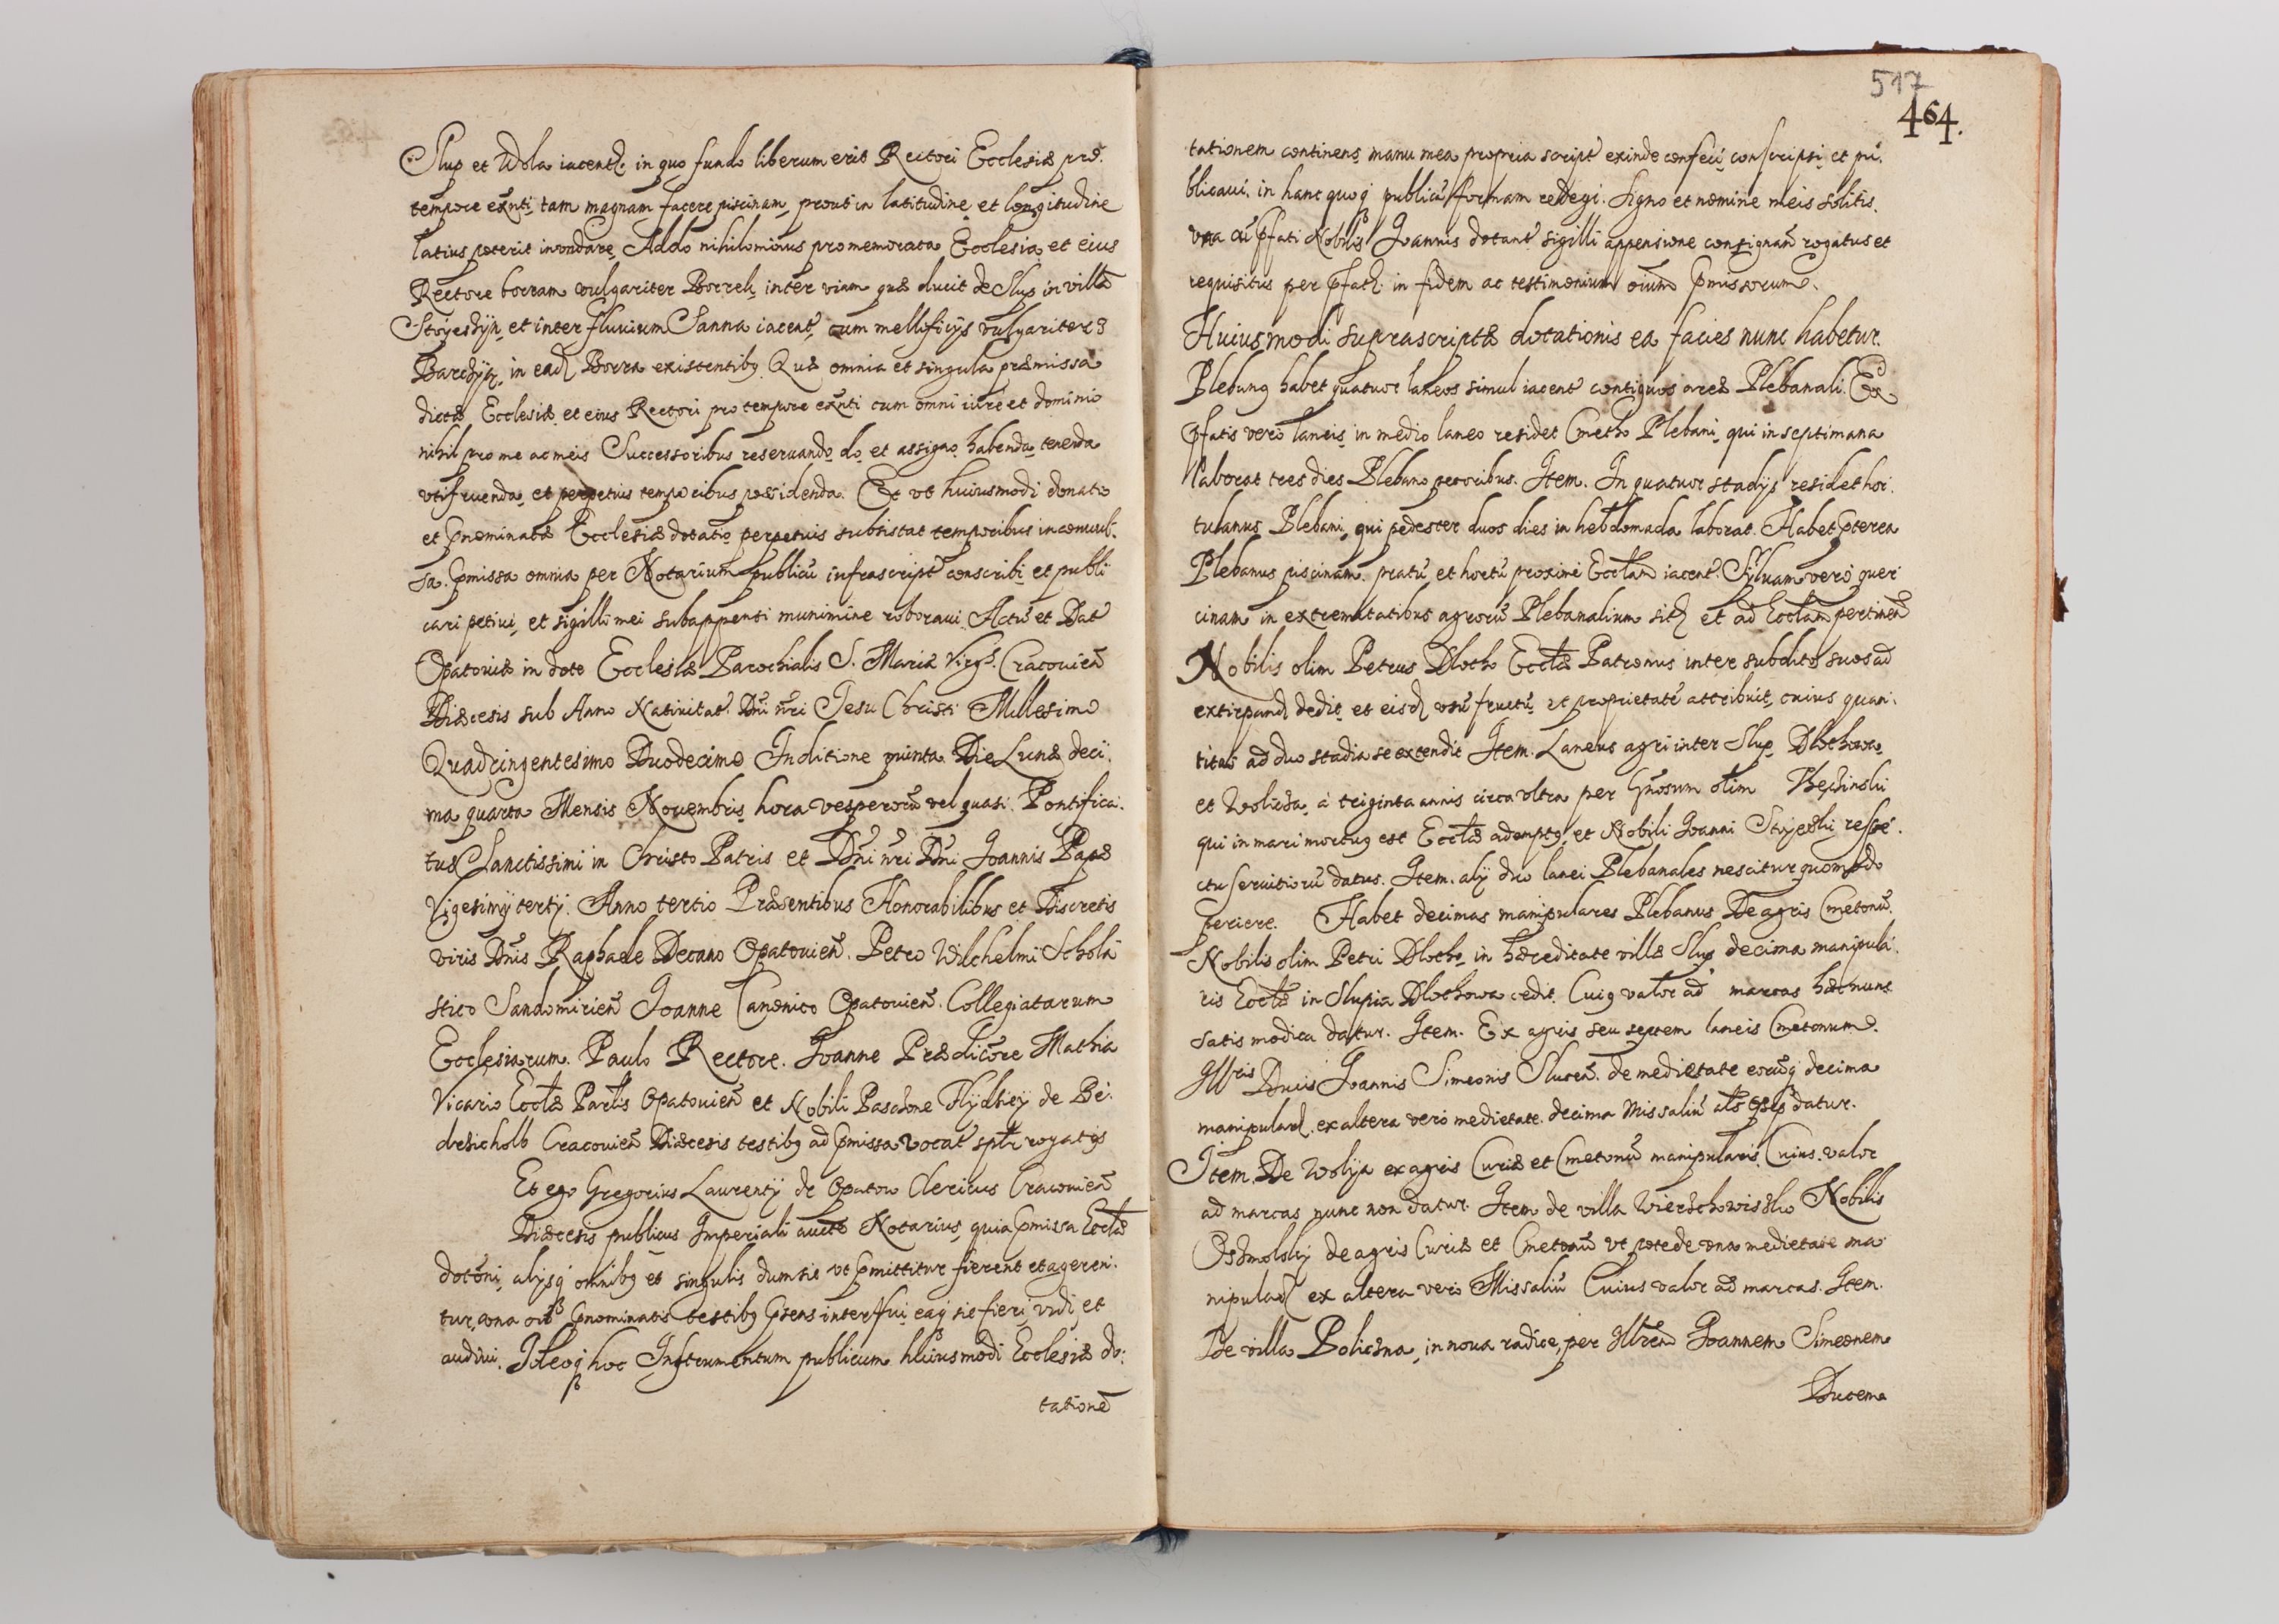 Slup et Wola iacentē. in quo fundo liberum erit Rectori Ecclesiæ pro.
tempore exn̄ti, tam magnam facere piscinam, prout in latitudine et longitudine
latius poterit inondare, Addo nihilominus pro memorata Ecclesia et eius
Rectore borram vulgariter Borrek, inter viam quæ ducit de Slup in villā
et inter fluuium Sanna iacent, cum mellificijs vulgariter
in ead Borra existentibg Quæ omnia et singula præmissa
dictæ Ecclesiæ et eius Rectori pro tempore exn̄ti cum omni iure et dominio
nihil pro me ac meis Successoribus reseruando, do, et assigno, habenda, tenenda
vtifruenda, et perpetuis temporibus possidenda. Et vt huiusmodi donatio
et pnominatæ Ecclesiæ dotatio perpetuis subsistat temporibus inconuul.
sa. pmissa omnia per Notarium publicū infrascript conscribi et publi
cari petiui, et sigilli mei subappensi munimine roboraui. Actū et Dat
Opatouiæ in dote Ecclesiæ Parochialis S. Mariæ Virgs. Cracouien̄
Diæcesis sub Anno Natiuitat. Dn̄i nr̄i Jesu Christi Millesimo
Quadringentesimo Duodecimo Inditione quinta. Die Lunæ deci.
ma quarta Mensis Nouembris, hora vesperorū vel quasi. Pontifica.
tus Sanctissimi in Christo Patris et Dn̄i nr̄i Dn̄i Joannis Papæ
Vigesimij tertij. Anno tertio Præsentibus Honorabilibus et Discretis
viris Dn̄is Raphaele Decano Opatouien̄. Petro Wilchelmi Schola
stico Sandomirien̄ Joanne Canonico Opatouien̄. Collegiatarum
Ecclesiarum. Paulo Rectore. Joanne Prædicōre Mathia
Vicario Eccłæ Parłis Opatouien̄ et Nobili Paschone de Be.
Cracouien̄ Diæcesis testibg ad pmissa vocat spłr rogatis
Et ego Gregorius Laurentij de Opatow Clericus Cracouien̄
Diæcesis publicus Imperiali aucte Notarius, quia pmissa Eccłæ
dotōni, alijsq omnibg et singulis dum sic vt pmittitur fierent et ageren.
tur, vna pnominatis testibg pſens interfui, eaq sic fieri, vidi et
audiui. Ideoq hoc Instrumentum publicum huiusmodi Ecclesiæ do.
tationē
517
464.
tationem continens manu mea propria script exinde confeci, conscripsi et pu.
blicaui. in hanc quoq publicā formam redegi. Signo et nomine meis solitis.
vna cū pfati Nobilis Joannis dotant sigilli appensione consignan̄ rogatus et
requisitus per pfat. in fidem ac testimonium oīum pmissorum.
Huiusmodi suprascriptæ dotationis ea facies nunc habetur.
Plebang habet quatuor laneos simul iacent contiguos areæ Plebanali. Ex
pfatis vero laneis, in medio laneo residet Cmetho Plebani, qui in septimana
laborat tres dies Plebano pecoribus. Item. In quatuor stadijs residet hor.
tulanus Plebani, qui pedester duos dies in hebdomada laborat. Habet pterea
Plebanus piscinam. pratū, et hortū proximè Eccłam iacent. Syluam verò quer
cinam in extremitatibus agrorū Plebanalium sit et ad Eccłam pertinen̄
Nobilis olim Petrus Dlotho Eccłæ Patronus inter subditos suos ad
extirpand dedit, et eisd vsū fructū, et proprietatē attribuit, cuius quan.
titas ad duo stadia se extendit Item. Laneus agri inter Slup, Dlothowa,
et Wolicza, à triginta annis circa vltra per Gn̄osum olim
qui in mari mortug est Eccłæ ademptg, et Nobili Joanni respe.
ctu seruitiorū datus. Item. alij duo lanei Plebanales nescitur quomodo
periere. Habet decimas manipulares Plebanus De agris Cmetonū.
Nobilis olim Petri Dlotho, in hæreditate villæ Slup decima manipula.
ris Eccłæ in Slupia Dlothowa cedit. Cuig valor ad marcas hæc nunc
satis modica datur. Item. Ex agris seu septem laneis Cmetonum.
Illris Ducis Joannis Simeonis Slucen̄. de medietate eorūq decima
manipulard. ex altera verò medietate. decima Missaliū als osep datur.
Item. De Wolija ex agris Curiæ et Cmetonū manipularis. Cuius. valor
ad marcas nunc non datur. Item de villa Wierzchowissko Nobilis
Ossmolskij de agris Curiæ et Cmetonū vt pote de vna medietate ma
nipulad ex altera vero Missaliū Cuius valor ad marcas. Item.
De villa Boliczna, in noua radice, per Illrem Joannem Simeonem
Ducem